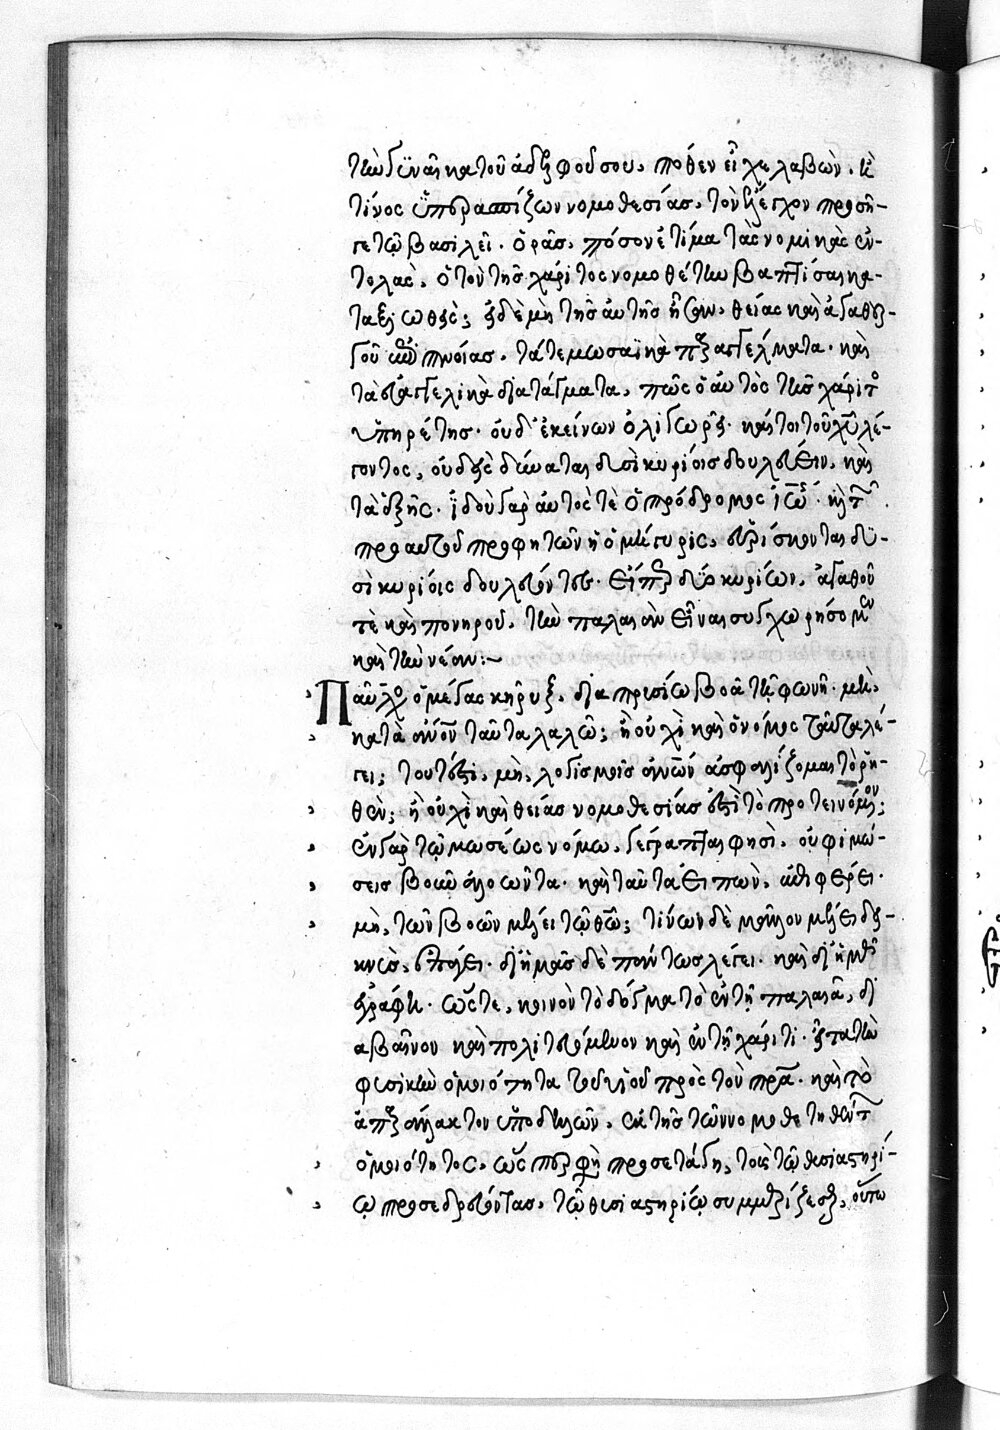 τὴν γυναῖκα τοῦ ἀδελφοῦ σου, πόθεν εἶχε λαβὼν. καὶ
τίνος ὑπερασπίζων νομοθεσίας, τὸν ἔλεγχον προσῆ-
γε τῷ βασιλεῖ. ὁρᾷς, πόσον ἐτίμα τὰς νομικὰς ἐν-
τολὰς, ὁ τὸν τῆς χάριτος νομοθέτην βαπτίσαι κα-
ταξιωθεὶς; εἰ δὲ μὴ τῆς αὐτῆς ἦσαν, θείας καὶ ἀγαθῆς
τοῦ πνεύματος ἐπιπνοίας, τά τε μωσαϊκὰ παραγγέλματα. καὶ
τὰ εὐαγγελικὰ διατάγματα, πῶς ὁ αὐτὸς τῆς χάριτος
ὑπηρέτης. οὐδ' ἐκείνων ὀλιγωρεῖ. καίτοι τοῦ χριστοῦ λέ-
γοντος, οὐδεὶς δύναται δυσὶ κυρίοις δουλεύειν, καὶ
τὰ ἑξῆς. ἰδοὺ γὰρ αὐτός τε ὁ πρόδρομος ἰωάννης. καὶ τῶν
πρὸ αὐτοῦ προφητῶν ἡ ὁμήγυρις, εὑρίσκονται δυ-
σὶ κυρίοις δουλεύοντες. εἴπερ δύο κυρίων, ἀγαθοῦ
τὲ καὶ πονηροῦ, τὴν παλαιὰν εἶναι συγχωρήσομεν
καὶ τὴν νέαν:~
Παῦλος ὁ μέγας κήρυξ, διαπρυσίῳ βοᾷ τῇ φωνῇ. μὴ,
κατὰ ἄνθρωπον ταῦτα λαλῶ; ἢ οὐχὶ καὶ ὁ νόμος ταῦτα λέ-
γει; τουτέστι, μὴ, λογισμοῖς ἀνθρώπων ἀσφαλίζομαι τὸ ῥη-
θὲν; ἢ οὐχὶ καὶ θείας νομοθεσίας ἐστὶ τὸ προτεινόμενον;
ἐν γὰρ τῷ μωσέως νόμῳ, γέγραπται φησὶ. οὐ φιμώ-
σεις βοῦν ἀλοῶντα. καὶ ταῦτα εἰπὼν, ἐπιφέρει.
μὴ, τῶν βοῶν μέλει τῷ θεῷ; τίνων δὲ μᾶλλον μέλει δει-
κνὺς, ἐπάγει. δι' ἡμᾶς δὲ πάντως λέγει. καὶ δι' ἡμᾶς
ἐγράφη. ὥστε, κοινὸν τὸ δόγμα τὸ ἐν τῇ παλαιᾷ, δι-
αβαῖνον καὶ πολιτευόμενον καὶ ἐν τῇ χάριτι. εἶτα τὴν
φυσικὴν ὁμοιότητα τοῦ υἱοῦ πρὸς τὸν πατέρα. καὶ τὸ
ἀπαράλλακτον ὑποδηλῶν, ἐκ τῆς τῶν νομοθετηθέντων
ὁμοιότητος, ὥσπερ φησὶ προσετάγη, τοὺς τῷ θυσιαστηρί-
ῳ προσεδρεύοντας, τῷ θυσιαστηρίῳ συμμερίζεσθαι, οὕτω